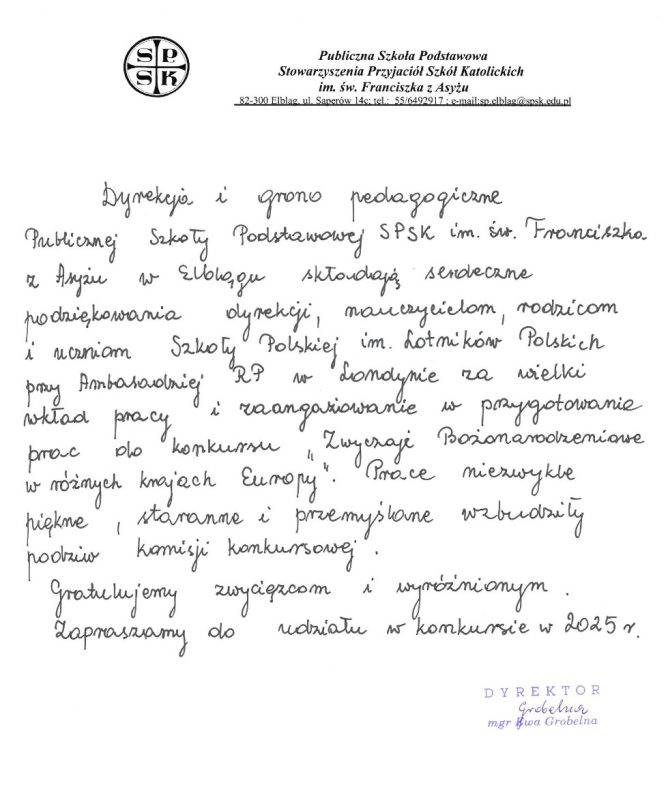 SP
SK
Publiczna Szkoła Podstawowa
Stowarzyszenia Przyjaciół Szkół Katolickich
im. św. Franciszka z Asyżu
82-300 Elbląg, ul. Saperów 14c; tel.: 55/6492917 ; e-mail:sp.elblag@spsk.edu.pl
Dyrekcja i grono pedagogiczne
Publicznej Szkoły Podstawowej SPSK im. św. Franciszka
z Asyżu w Elblągu składają serdeczne
podziękowania dyrekcji, nauczycielom, rodzicom
i uczniom Szkoły Polskiej im. Lotników Polskich
przy Ambasadziej RP w Londynie za wielki
wkład pracy i zaangażowanie w przygotowanie
prac do konkursu „Zwyczaje Bożonarodzeniowe
w różnych krajach Europy". Prace niezwykle
piękne, staranne i przemyślane wzbudziły
podziw komisji konkursowej.
Gratulujemy zwycięzcom i wyróżnionym.
Zapraszamy do udziału w konkursie w 2025 r.
DYREKTOR
Grobelna
mgr Ewa Grobelna